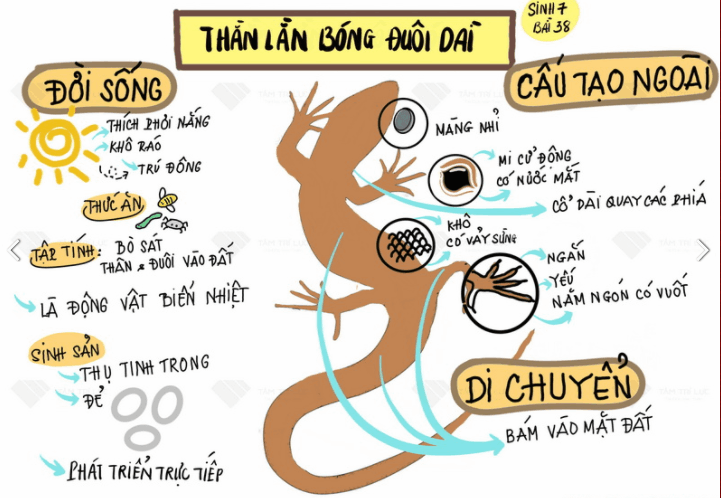 SINH 7
BÀI 38
THẰN LẰN BÓNG ĐUÔI DÀI
ĐỜI SỐNG
THÍCH PHƠI NẮNG
KHÔ RÁO
TRÚ ĐÔNG
THỨC ĂN
TẬP TÍNH: BÒ SÁT
THÂN & ĐUÔI VÀO ĐẤT
LÀ ĐỘNG VẬT BIẾN NHIỆT
SINH SẢN
THỤ TINH TRONG
ĐẺ
PHÁT TRIỂN TRỰC TIẾP
CẤU TẠO NGOÀI
MÀNG NHĨ
MI CỬ ĐỘNG
CÓ NƯỚC MẮT
CỔ DÀI QUAY CÁC PHIÁ
KHÔ
CÓ VẢY SỪNG
NGẮN
YẾU
NĂM NGÓN CÓ VUỐT
DI CHUYỂN
BÁM VÀO MẶT ĐẤT